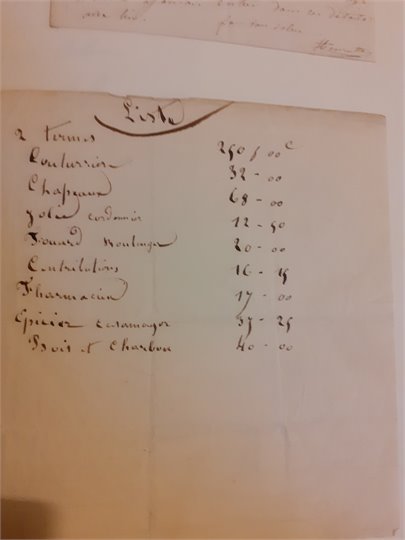 entrer dans ces détails
avec lui.
Liste
2 termes 250 f 00 c
Couturière 32 - 00
Chapeaux 68 - 00
Jolie cordonnier 12 - 50
Fouard Boulanger 20 - 00
Contributions 16 - 15
Pharmacien 17 - 00
Epicier 37 - 25
Bois et Charbon 40 - 00